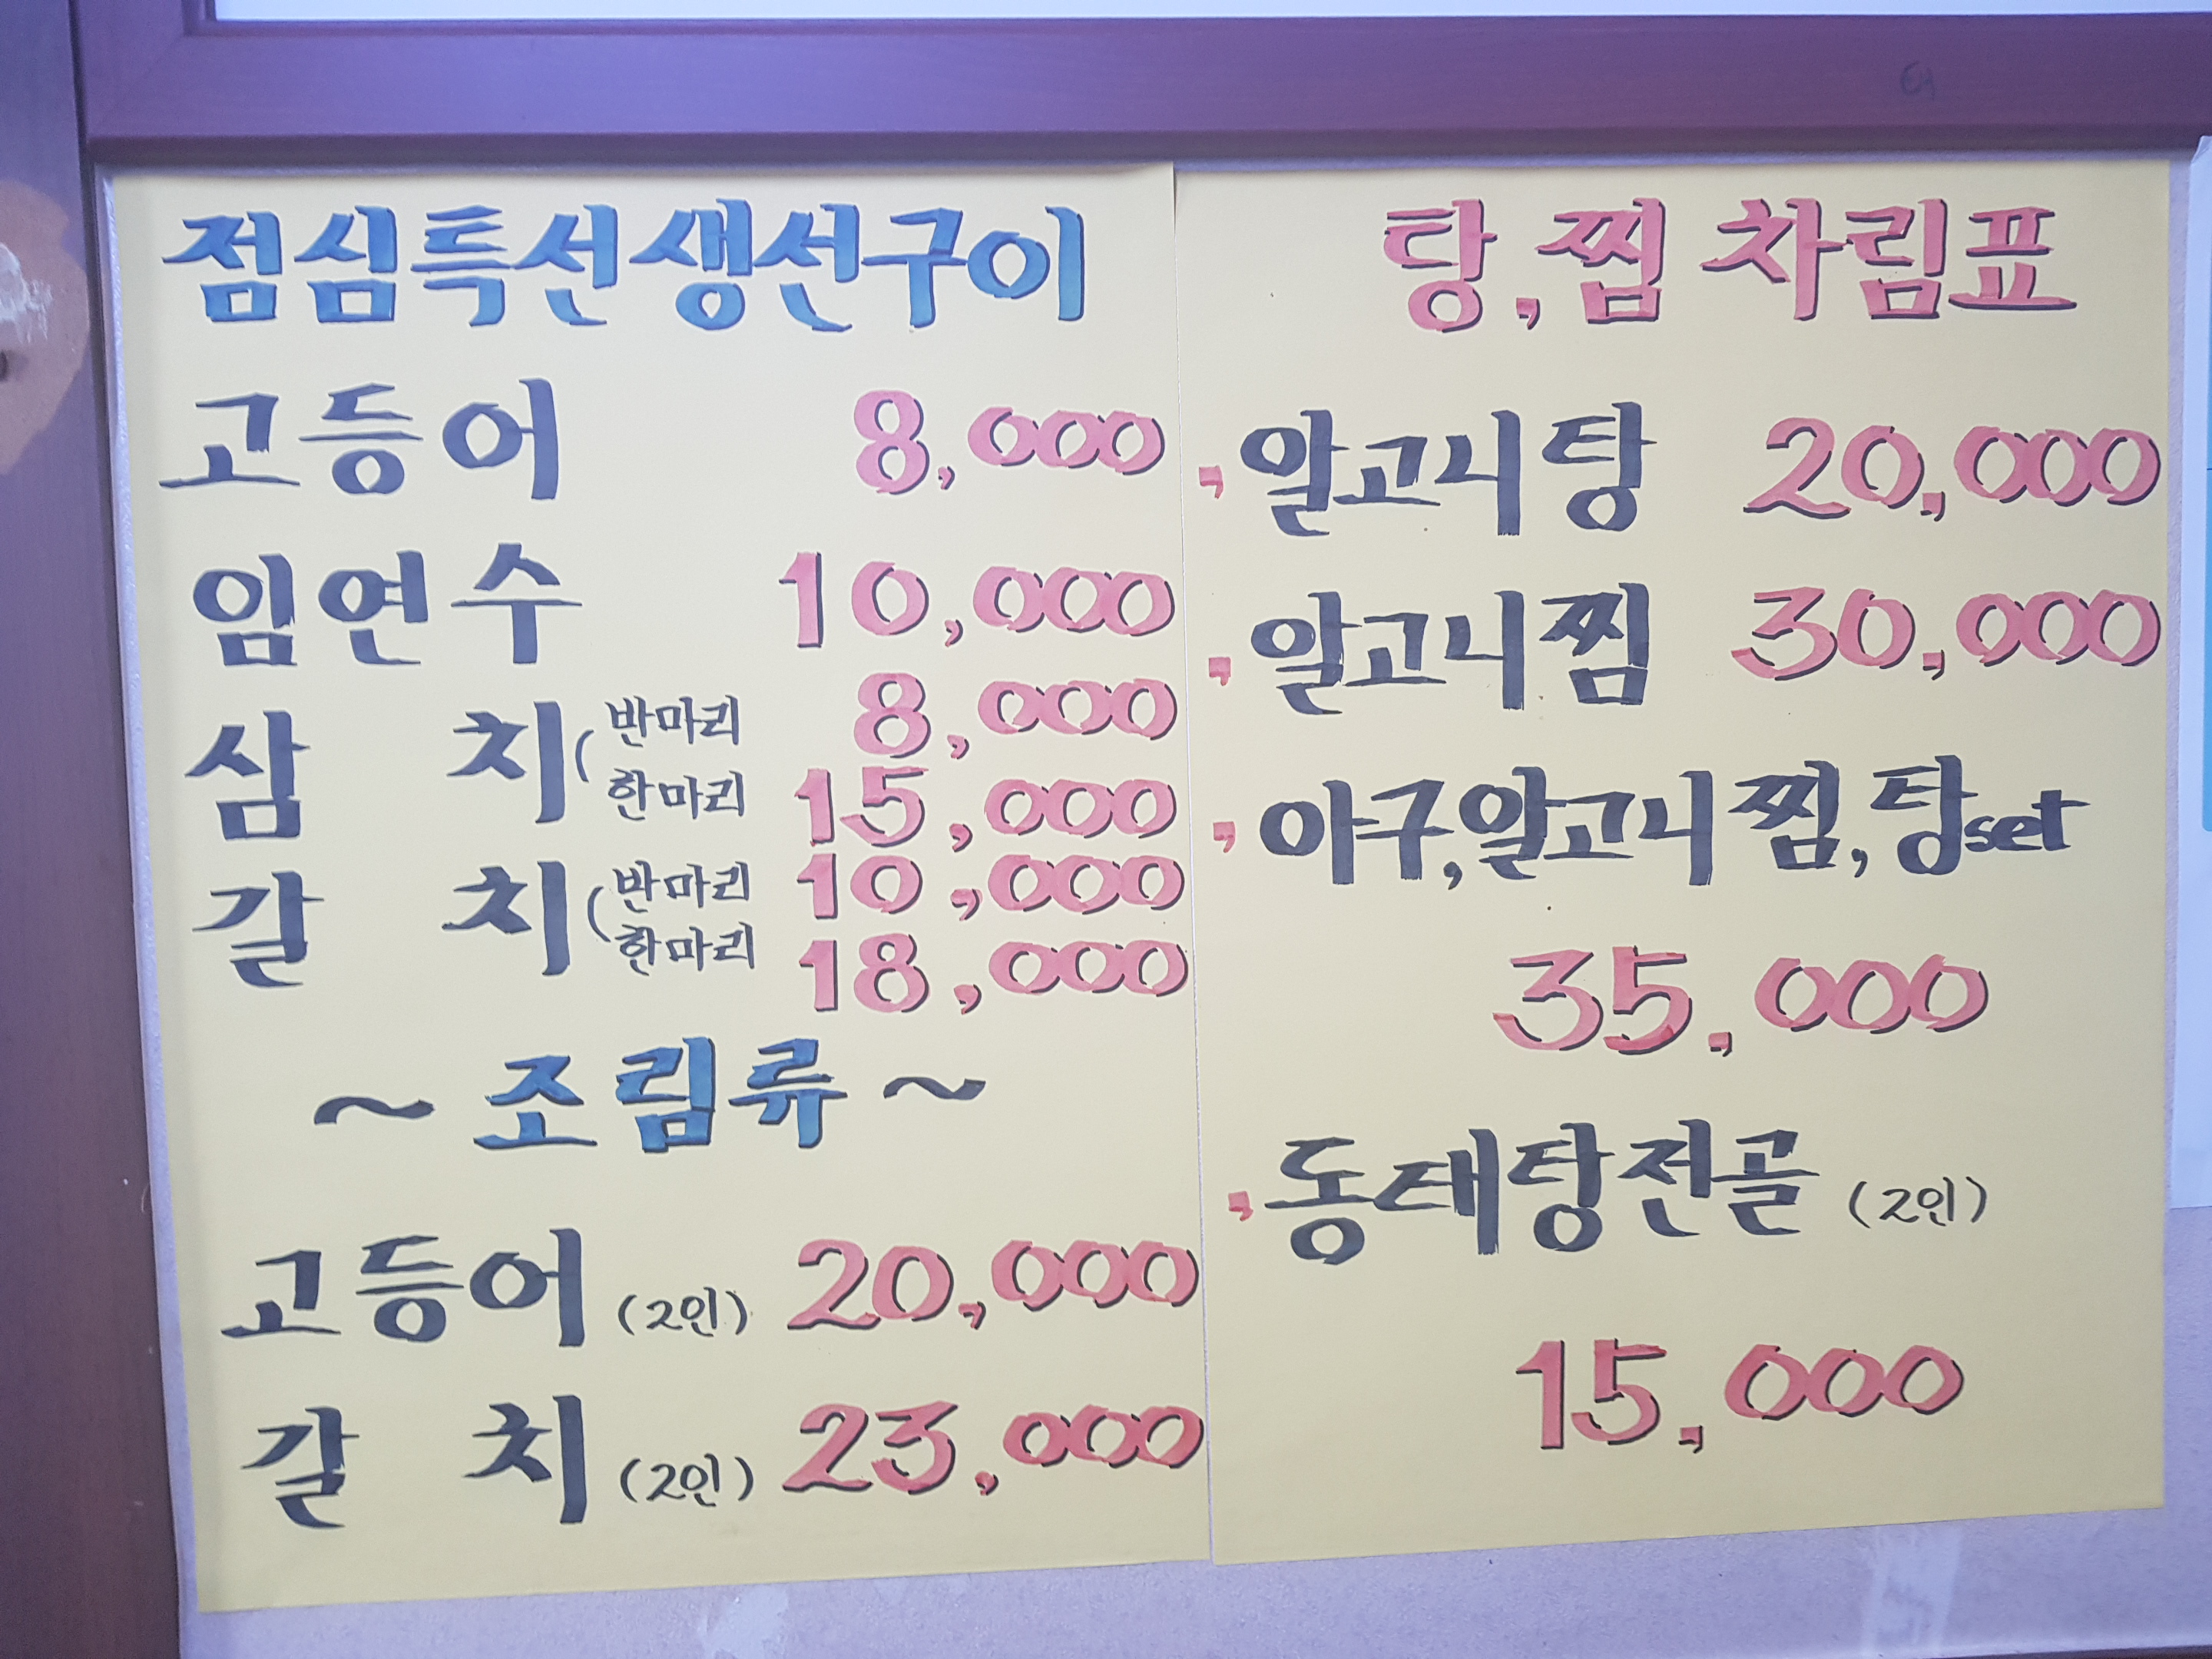 점심특선생선구이
고등어 8,000
임연수 10,000
삼치(반마리 8,000
한마리 15,000
갈치(반마리 10,000
한마리 18,000
~조림류~
고등어(2인) 20,000
갈치(2인) 23,000
탕,찜 차림표
,알고니탕 20,000
,알고니찜 30,000
,아구,알고니찜,탕set
35,000
,동태탕전골(2인)
15,000